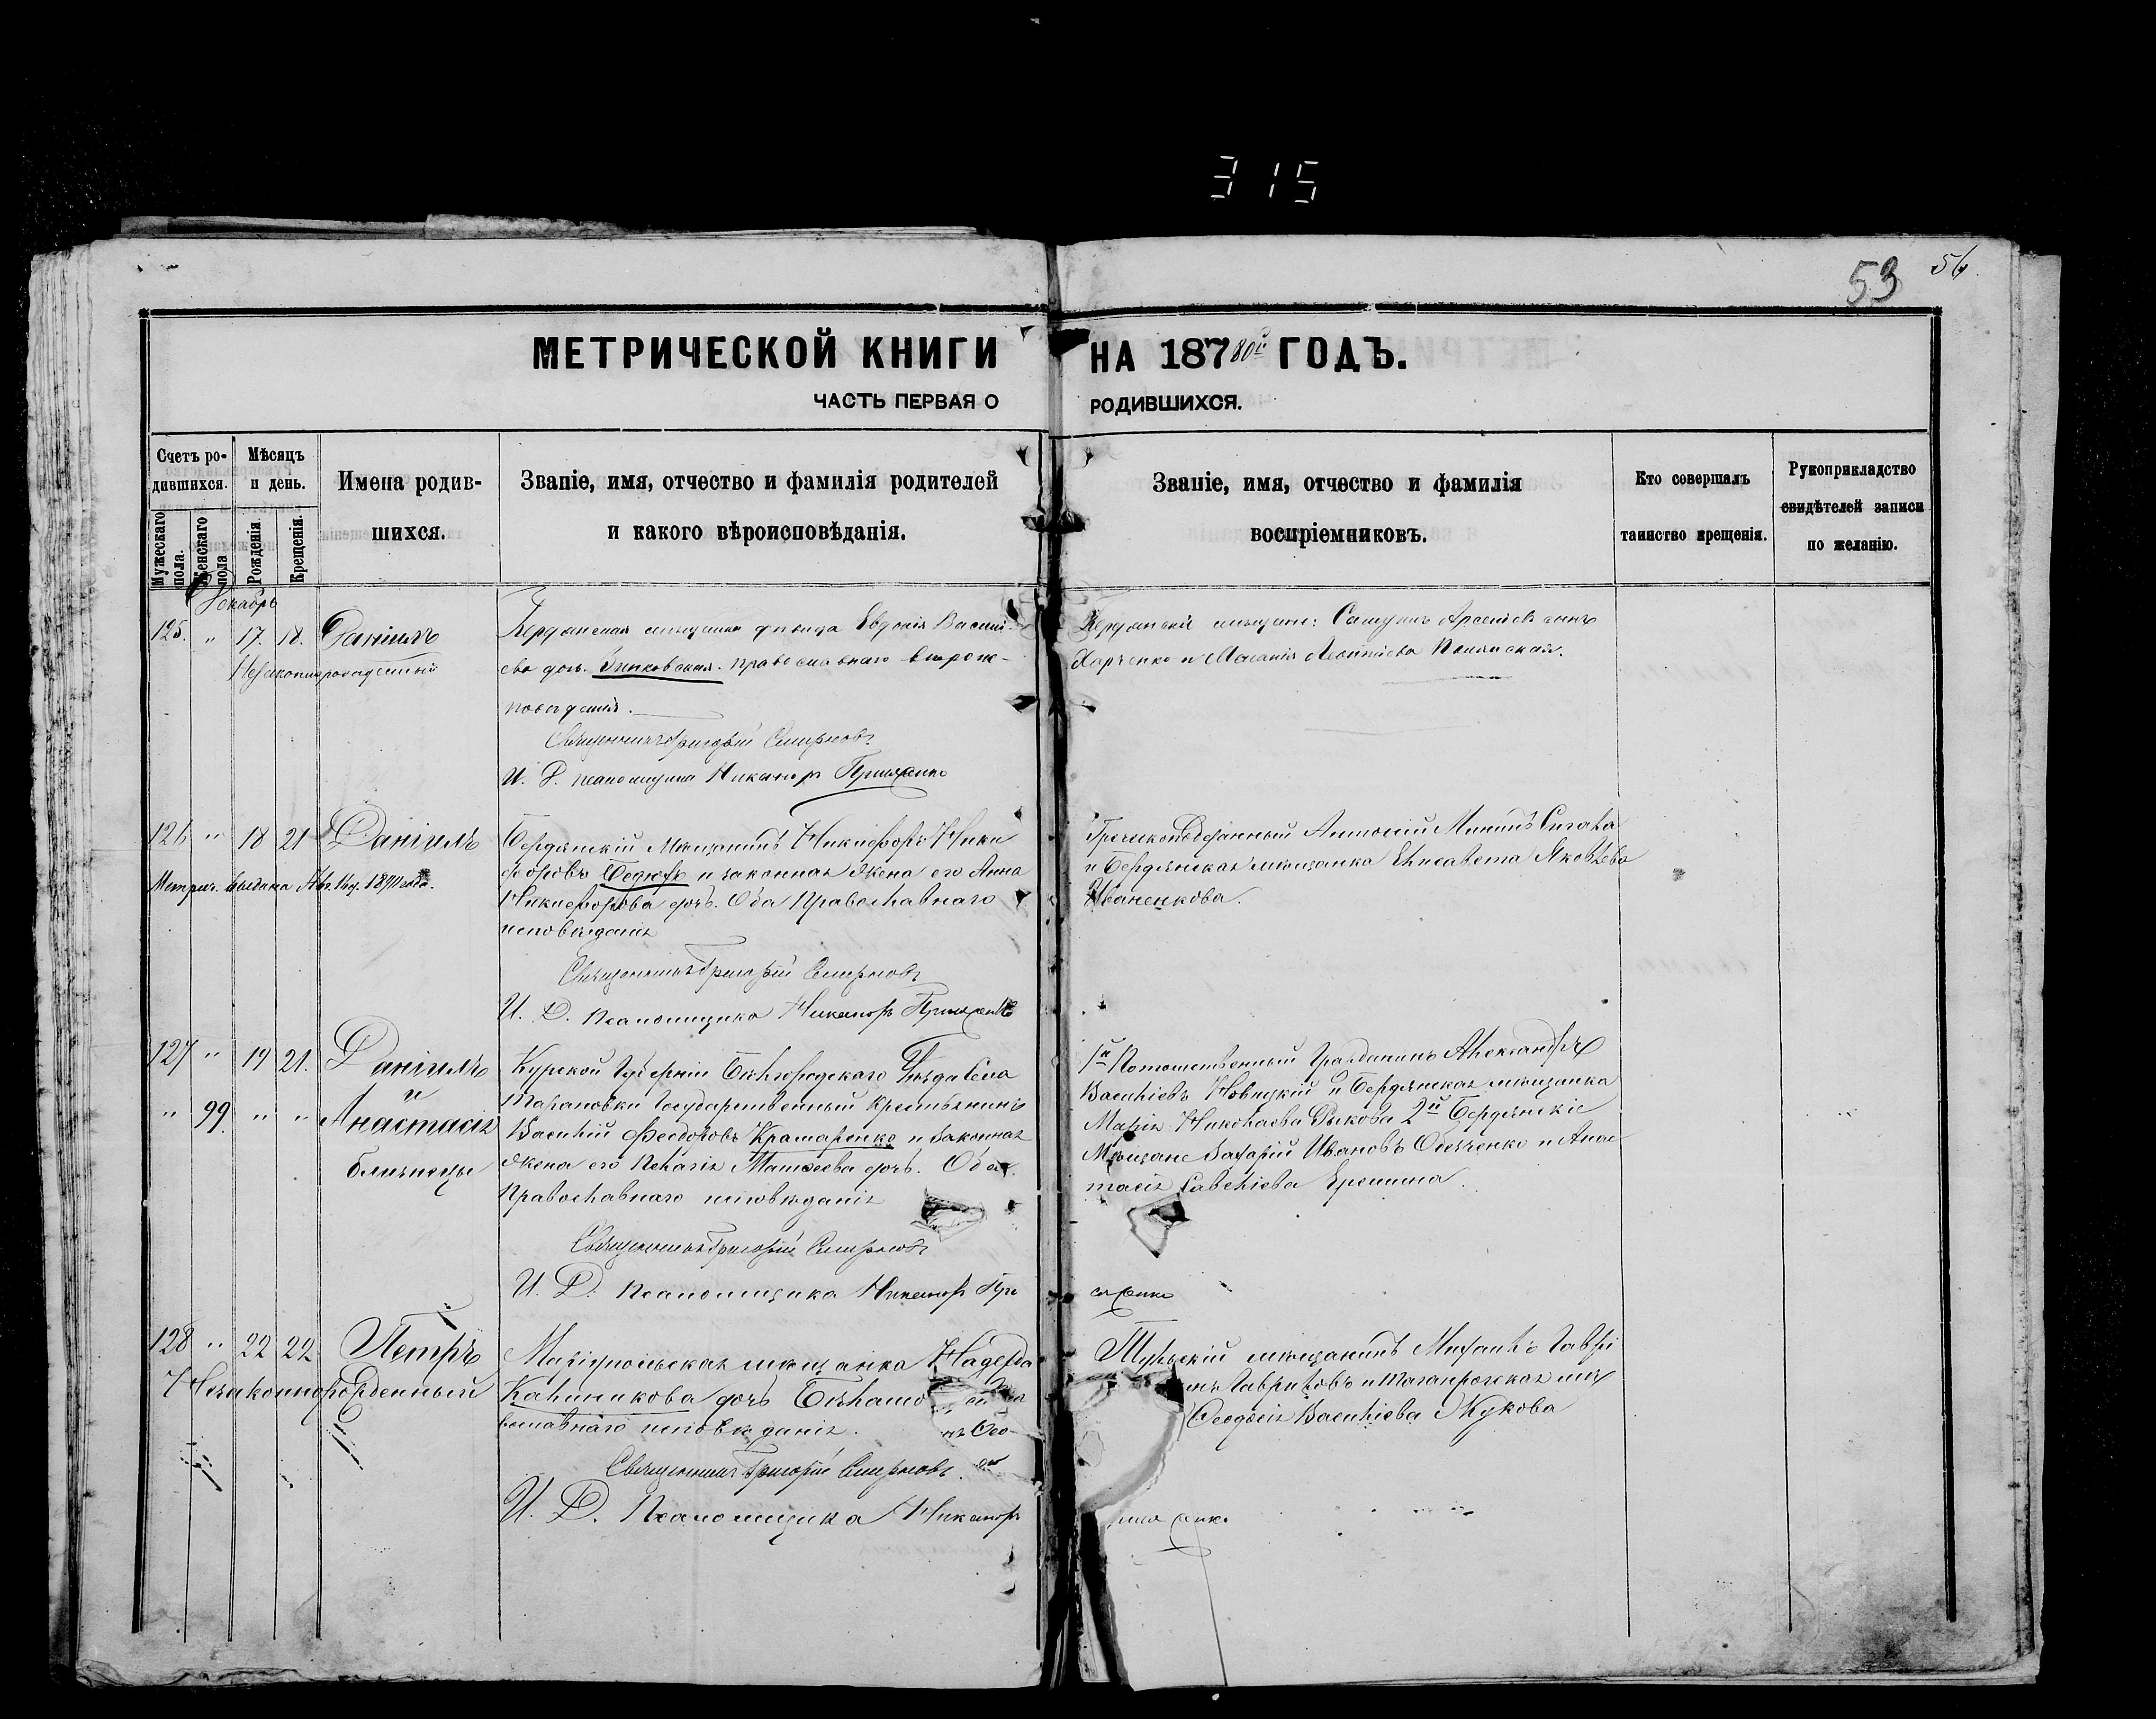 315
53 54.
МЕТРИЧЕСКОЙ КНИГИ НА 187 80й ГОДЪ.
ЧАСТЬ ПЕРВАЯ О РОДИВШИХСЯ.
Счетъ родившихся.
Мужескаго пола.
Женскаго пола
Мѣсяцъ и день.
Рожденія.
Крещенія.
Имена родив-
шихся.
Званіе, имя, отчество и фамилія родителей
и какого вѣроисповѣданія.
Званіе, имя, отчество и фамилія
воспріемниковъ.
Кто совершалъ
таинство крещенія.
Рукоприкладство
свидѣтелей записи
по желанію.
Декабрь
125. " 17. 18. Даніилъ
Незаконнорожденный
Бердянская мѣщанка дѣвица Евдокія Василі-
ева доч. православнаго вѣрои-
повѣданія.
Священникъ Григорій Смирновъ
И. Д. псаломщика Никаноръ
Бердянскій мѣщан: Арсеніевъ сынъ
Харченко и Леонтіева
126 " 18 21 Даніилъ
Метрич. выдана 1890 года.
Бердянскій Мѣщанинъ Никифоръ Ники
форовъ и законная жена его Анна
Никифорова дочь. Оба Православнаго
исповѣданія
Священникъ Григорій Смирновъ
И. Д. Псаломщика Никаноръ
Греческоподданный Антоній
и Бердянская мѣщанка Елисавета Яковлева
Иваненкова.
127 " 19 21. Даніилъ
и
" 99 " " Анастасія
близнецы
Курской Губерніи Бѣлгородскаго Уѣзда Села
Тарановки Государственный Крестьянинъ
Василій Феодоровъ Крамаренко и законная
жена его Пелагія Матѳеева дочь. Оба
Православнаго исповѣданія
Священникъ Григорій Смирновъ
И. Д. Псаломщика Никаноръ
1й Потомственный Гражданинъ Александръ
Васильевъ Новицкій и Бердянская мѣщанка
Марія Николаева Рыкова 2й Бердянскіе
Мѣщане Захарій Ивановъ и Анас
тасія Савельева Еремина.
128 " 22 22 Петръ
Незаконнорожденный
Маріупольская мѣщанка Надежда
Калинникова дочь
вославнаго исповѣданія.
Священникъ Григорій Смирновъ.
И. Д. Псаломщика Никаноръ
Тульскій мѣщанинъ Михаилъ Гаври
Гавриловъ и Таганрогская мѣщ
Ѳеодосія Васильева Жукова